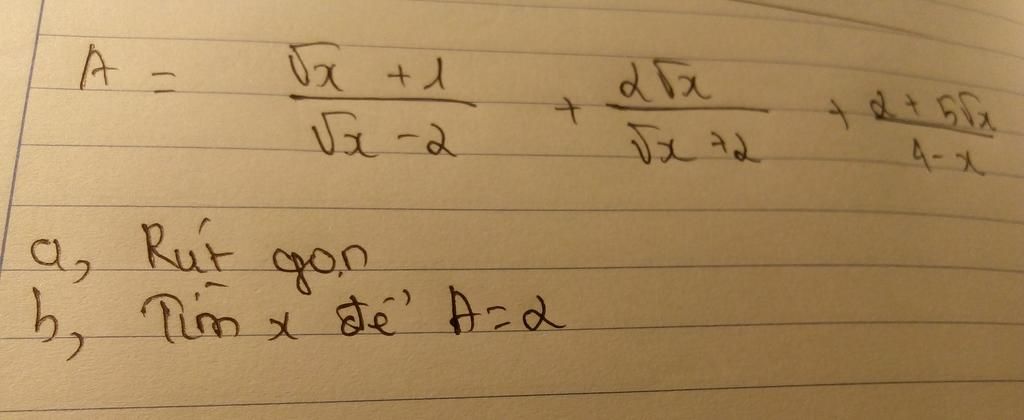 A = \frac{\sqrt{x} + 1}{\sqrt{x} - 2} + \frac{2\sqrt{x}}{\sqrt{x} + 2} + \frac{2 + 5\sqrt{x}}{4 - x}
a, Rút gọn
b, Tìm x để A = 2